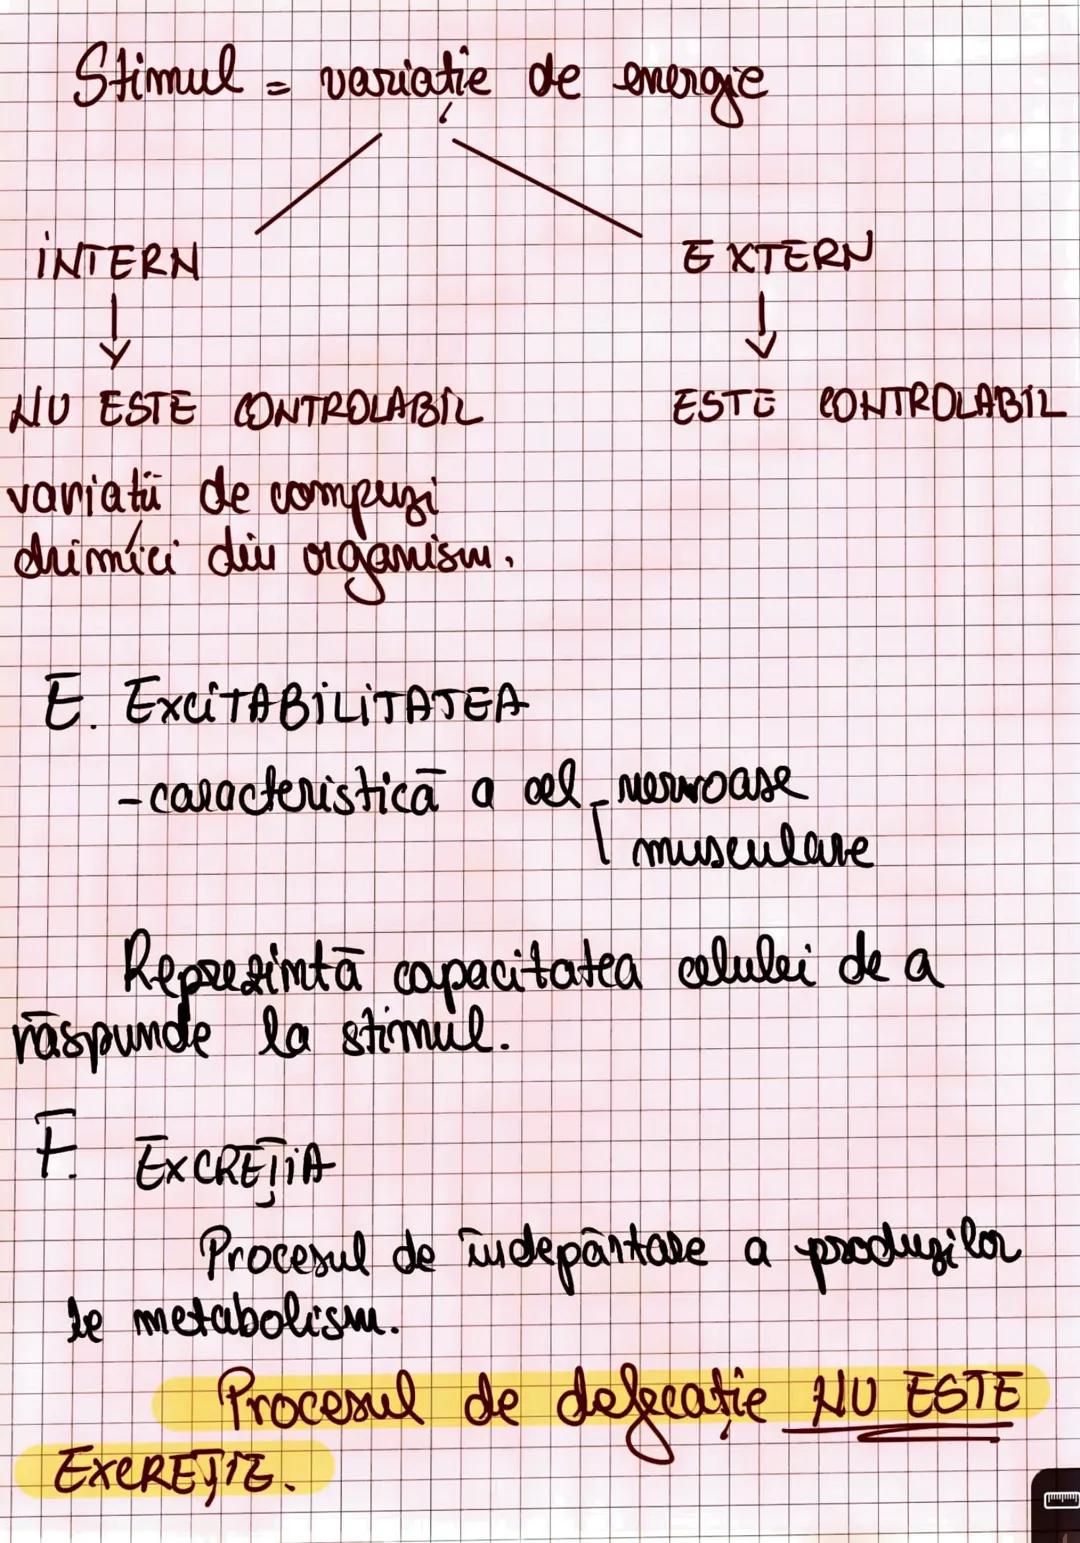 Stimul = variație de energie
INTERN EXTERN
NU ESTE CONTROLABIL ESTE CONTROLABIL
variații de compuși
chimici din organism.
E. EXCITABILITATEA
- caracteristică a cel nervoase
musculare
Reprezintă capacitatea celulei de a
răspunde la stimul.
F. EXCREȚIA
Procesul de îndepărtare a produșilor
de metabolism.
Procesul de defecație NU ESTE
EXCREȚIE.